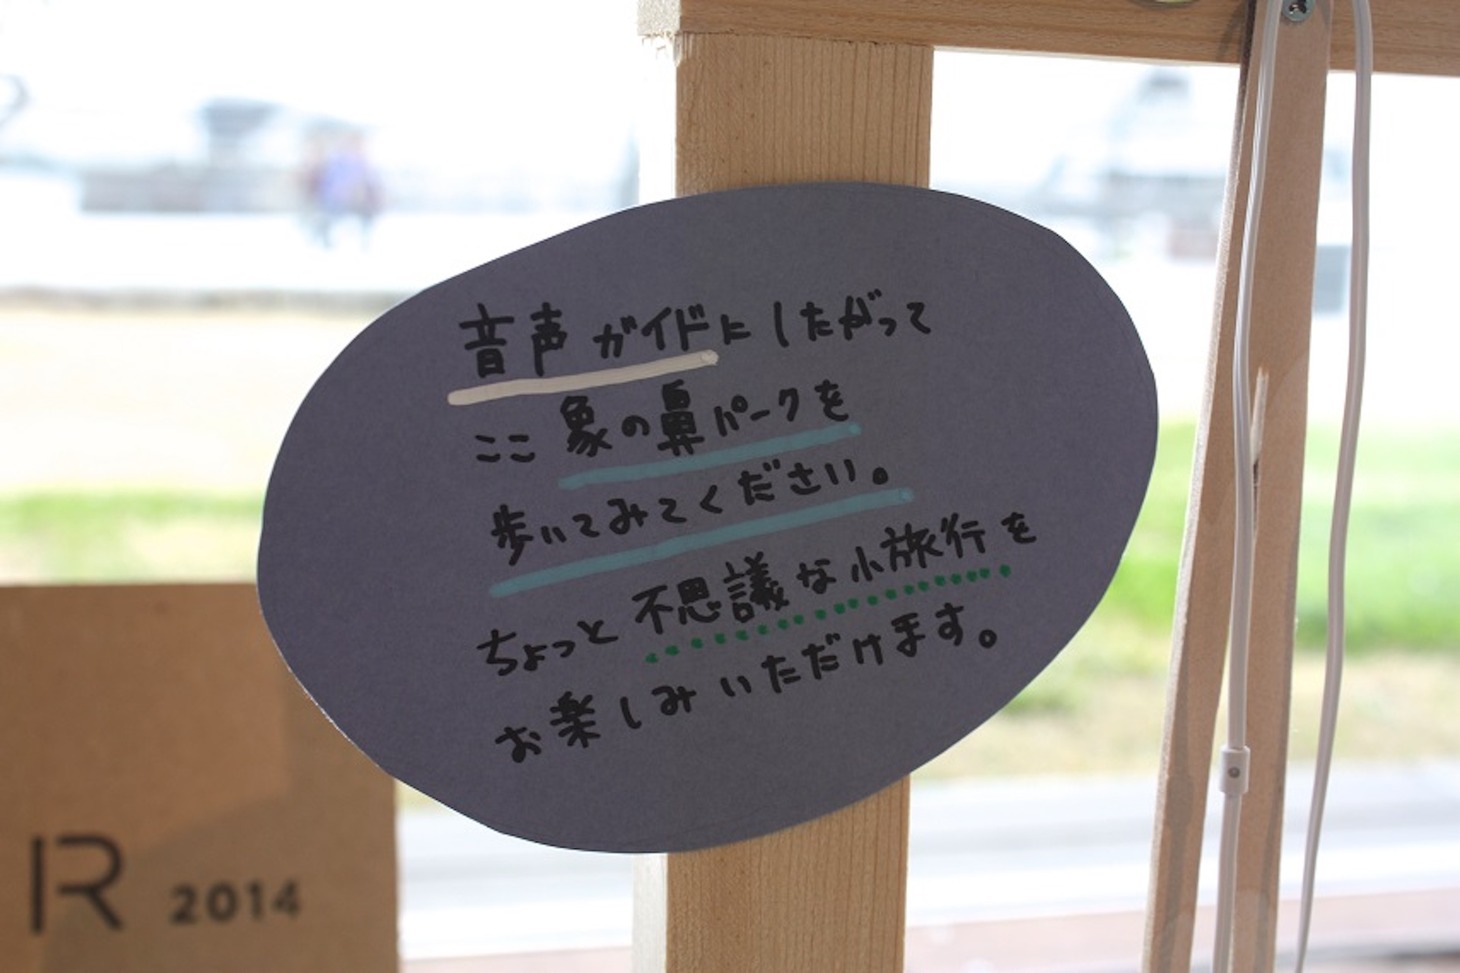 音声ガイドにしたがって
ここ象の鼻パークを
歩いてみてください。
ちょっと不思議な小旅行を
お楽しみいただけます。
R 2014